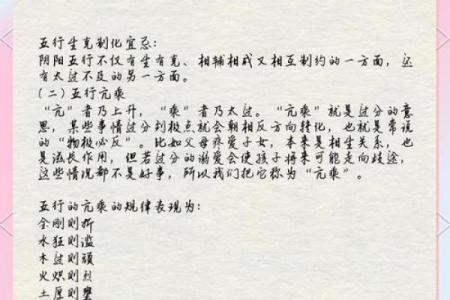 五行生克制化宜忌：
阴阳五行不仅有生有克、相辅相成又相互制约的一方面，还
有太过不及的另一方面。
（二）五行亢乘
“亢”者乃上升，“乘”者乃太过。“亢乘”就是过分的意
思，某些事情过分到极点就会朝相反方向转化，也就是常说
的“物极必反”。比如父母疼爱子女，本来是相生关系，也
是滋长作用，但若过分的溺爱会使孩子将来可能走向歧途，
这些情况都不是好事，所以我们把它称为“亢乘”。
五行的亢乘的规律表现为：
金刚则折
水狂则滥
木过则顽
火炽则烈
土厚则壅